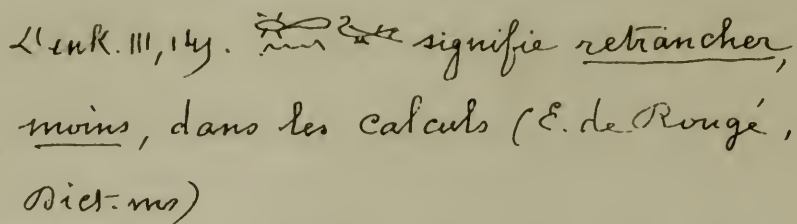 Denk. III, signifie retrancher,
moins, dans les calculs (E. de Rougé,
Dict. ms)